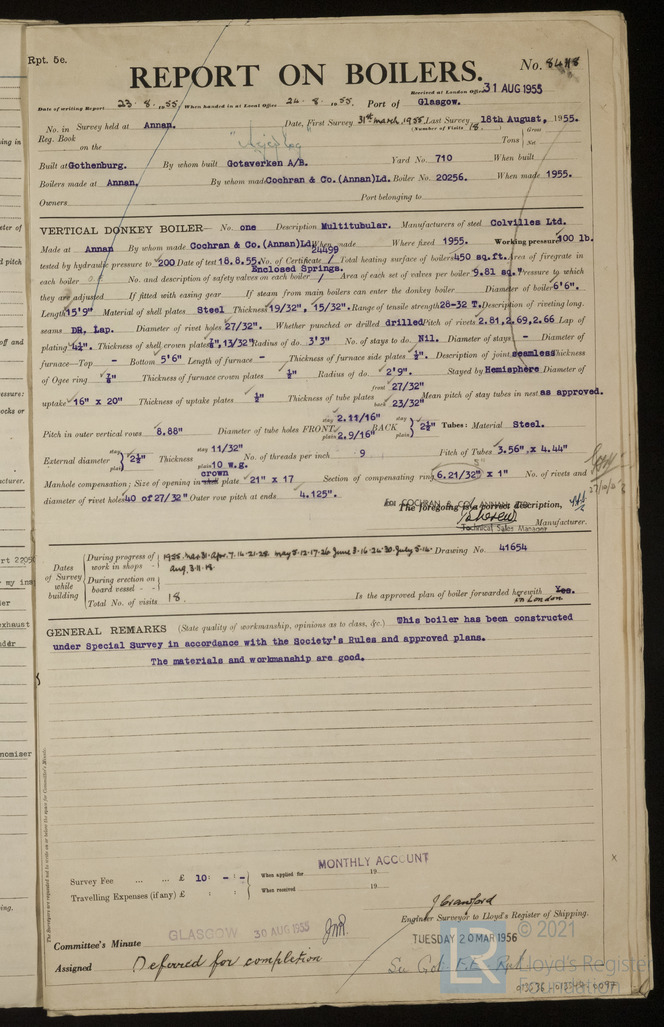 Rpt. 5c.
No. 84118
REPORT ON BOILERS.
Received at London Office 31 AUG 1955
Date of writing Report 23. 8. 1955. When handed in at Local Office 24. 8. 1955. Port of Glasgow.
No. in Survey held at Annan. Date, First Survey 31st march, 1955. Last Survey 18th August, 1955.
Reg. Book (Number of Visits 18. ) Tons Gross Net
on the
Built at Gothenburg. By whom built Gotaverken A/B. Yard No. 710 When built
Boilers made at Annan. By whom made Cochran & Co.(Annan)Ld. Boiler No. 20256. When made 1955.
Owners Port belonging to
VERTICAL DONKEY BOILER— No. one Description Multitubular. Manufacturers of steel Colvilles Ltd.
Made at Annan By whom made Cochran & Co.(Annan)Ld. When made Where fixed 1955. Working pressure 100 lb.
tested by hydraulic pressure to 200 Date of test 18.8.55. No. of Certificate 24499 Total heating surface of boilers 450 sq.ft. Area of firegrate in
each boiler No. and description of safety valves on each boiler Enclosed Springs. Area of each set of valves per boiler 9.81 sq." Pressure to which
they are adjusted If fitted with easing gear If steam from main boilers can enter the donkey boiler Diameter of boiler 6'6".
Length 15'9" Material of shell plates Steel Thickness 19/32", 15/32". Range of tensile strength 28-32 T. Description of riveting long.
seams DR. Lap. Diameter of rivet holes 27/32". Whether punched or drilled drilled Pitch of rivets 2.81,2.69,2.66 Lap of
plating Thickness of shell crown plates 13/32" Radius of do. 3'3" No. of stays to do. Nil. Diameter of stays - Diameter of
furnace—Top - Bottom 5'6" Length of furnace - Thickness of furnace side plates ½". Description of joint seamless Thickness
of Ogee ring ⅞" Thickness of furnace crown plates ½" Radius of do. 2'9". Stayed by Hemisphere Diameter of
uptake 16" X 20" Thickness of uptake plates ½" Thickness of tube plates front 27/32" back 23/32" Mean pitch of stay tubes in nest as approved.
Pitch in outer vertical rows 8.88" Diameter of tube holes FRONT stay 2.11/16" plain 2.9/16" BACK stay plain 2½" Tubes: Material Steel.
External diameter stay plain 2½" Thickness stay 11/32" plain 10 w.g. No. of threads per inch 9 Pitch of Tubes 3.56". x 4.44"
Manhole compensation: Size of opening in shell crown plate 21" x 17 Section of compensating ring 6.21/32" x 1" No. of rivets and
diameter of rivet holes 40 of 27/32" Outer row pitch at ends 4.125".
for COCHRAN & CO. ANNAN, LTD.
The foregoing is a correct description,
Technical Sales Manager Manufacturer.
Dates of Survey while building
During progress of work in shops - 1955. Mar 31. Apr. 7. 14. 21. 28. May 5. 12. 17. 26. June 3. 16. 24. 30. July 5. 14. Drawing No. 41654
Aug. 3. 11. 18.
During erection on board vessel -
Total No. of visits 18. Is the approved plan of boiler forwarded herewith Yes.
in London
GENERAL REMARKS (State quality of workmanship, opinions as to class, &c.) This boiler has been constructed
under Special Survey in accordance with the Society's Rules and approved plans.
The materials and workmanship are good.
Survey Fee ... ... £ 10: - : - When applied for MONTHLY ACCOUNT 19
Travelling Expenses (if any) £ : : When received 19
J Crawford
Engineer Surveyor to Lloyd's Register of Shipping.
Committee's Minute GLASGOW 30 AUG 1955 TUESDAY 20 MAR 1956
Assigned Deferred for completion
See Got. F.E. Rpt
© 2021
LR Lloyd's Register
Foundation